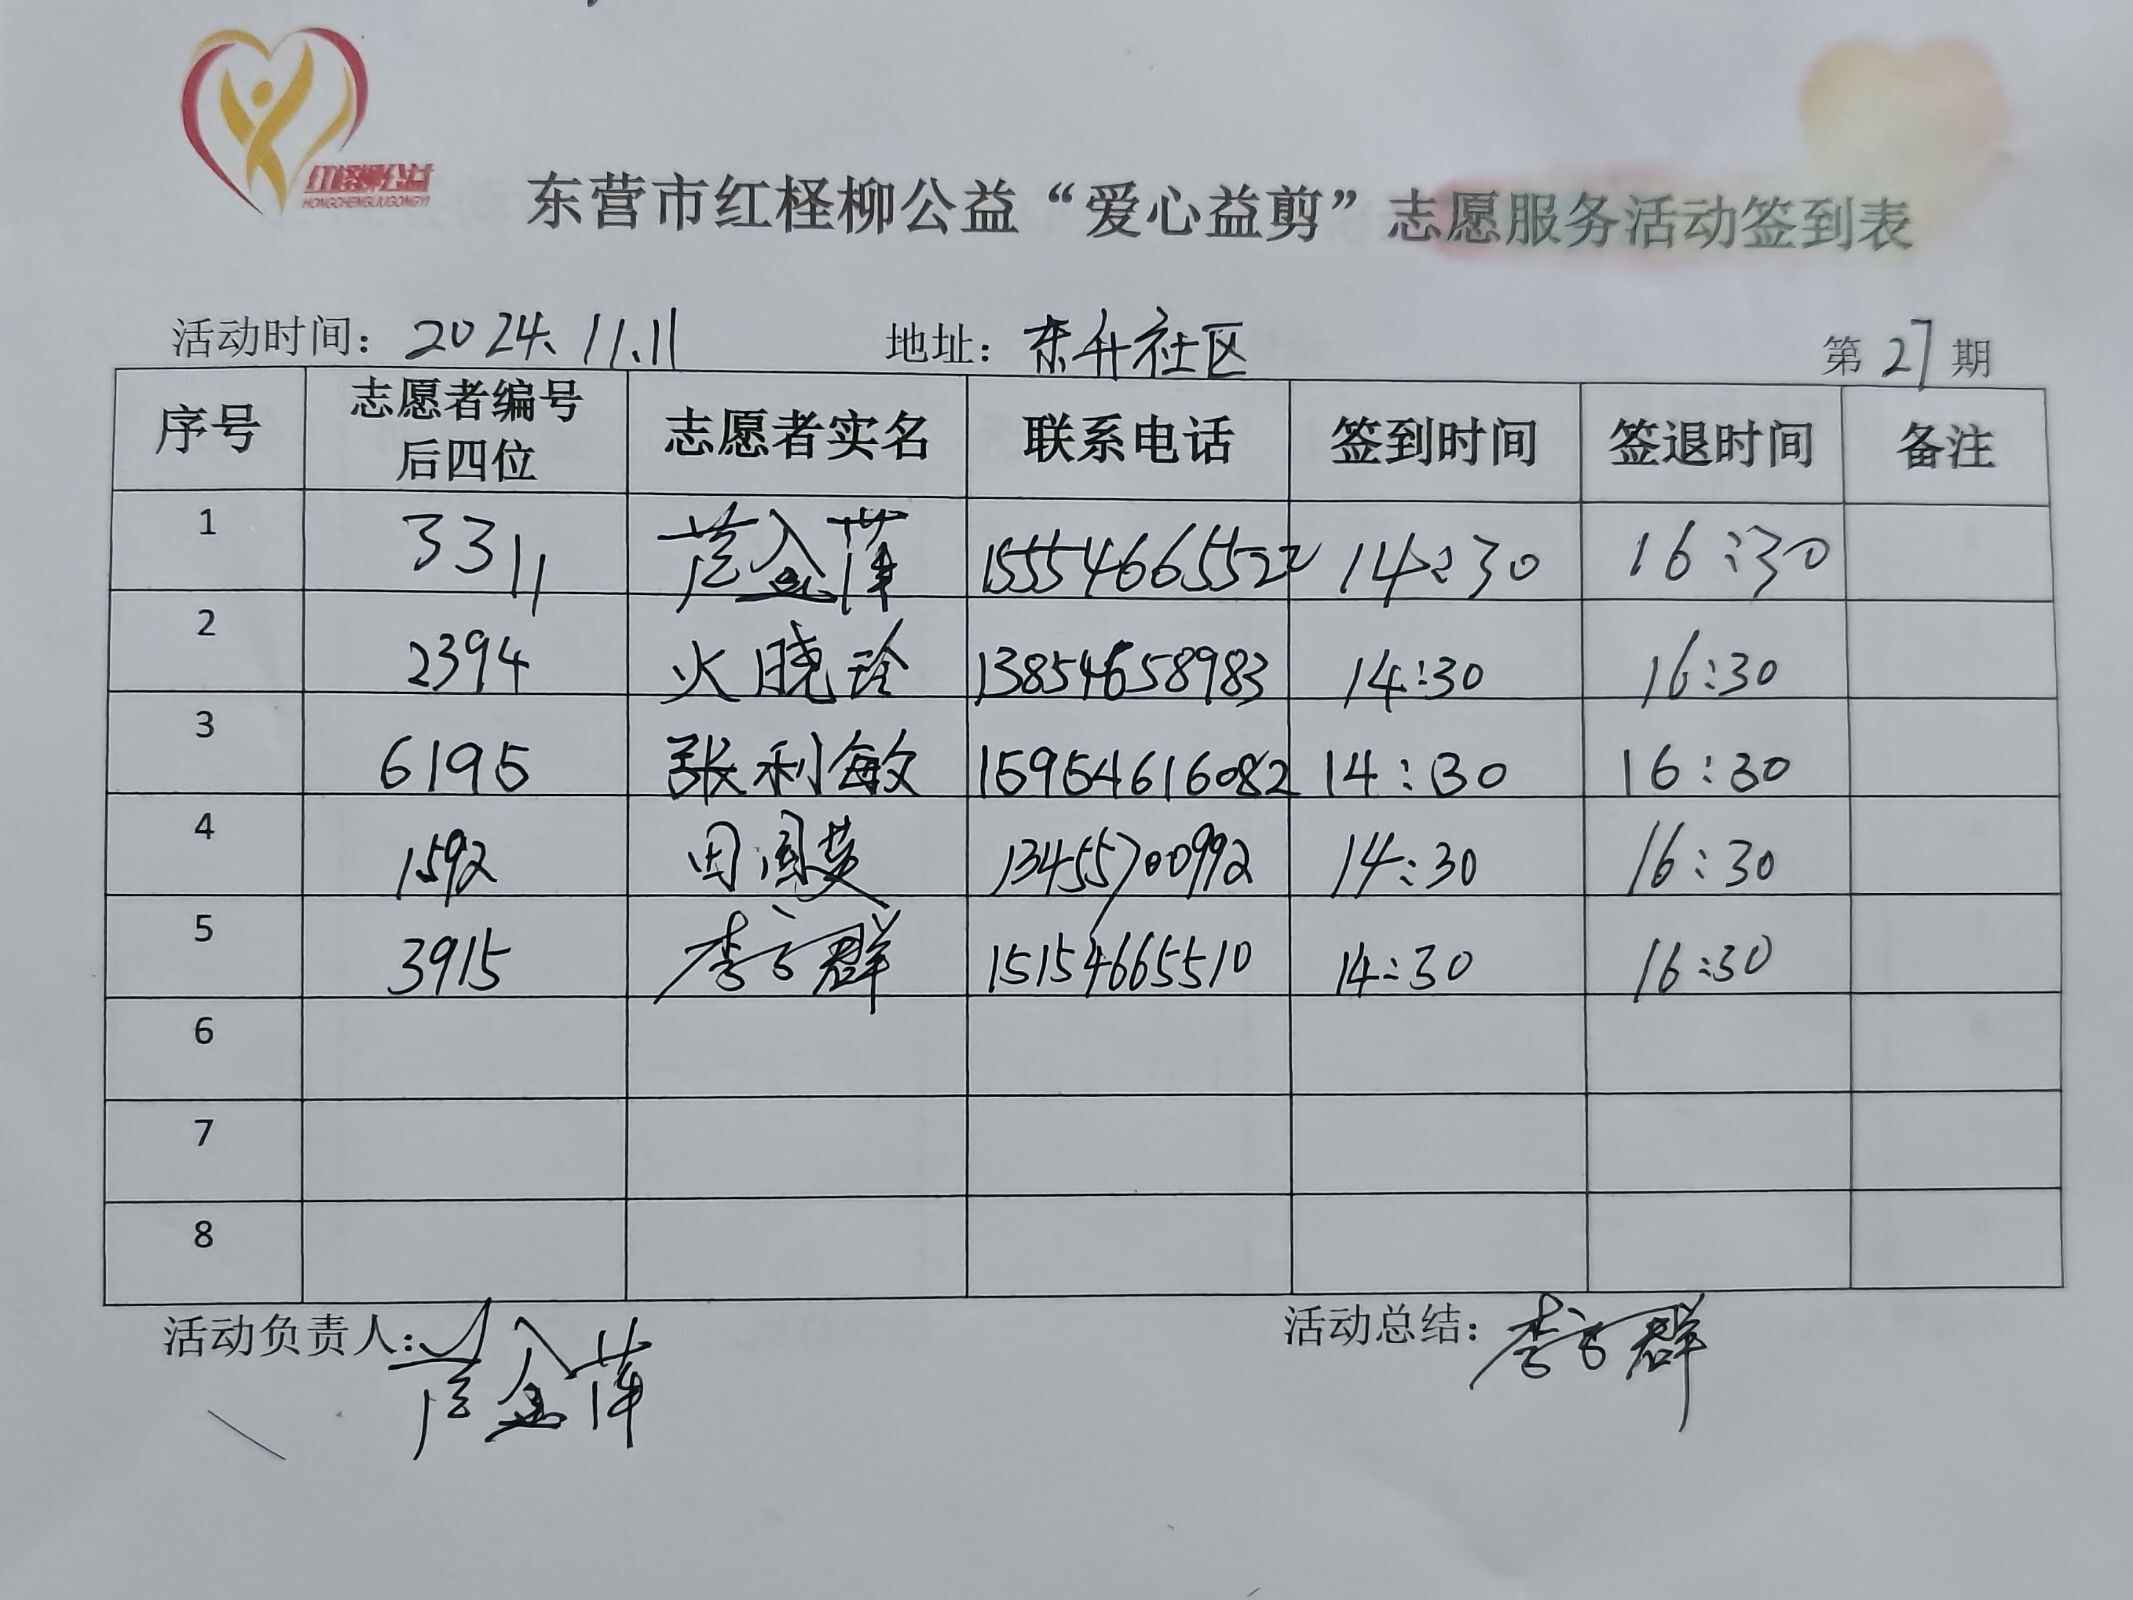 红柽柳公益
HONGCHENGLIUGONGYI
东营市红柽柳公益“爱心益剪”志愿服务活动签到表
活动时间：2024.11.11 地址：东升社区 第27期
序号 志愿者编号后四位 志愿者实名 联系电话 签到时间 签退时间 备注
1 3311 15554665522 14:30 16:30
2 2394 火晓玲 13854658983 14:30 16:30
3 6195 张利敏 15954616082 14:30 16:30
4 1592 田国英 13455700992 14:30 16:30
5 3915 李方群 15154665510 14:30 16:30
6
7
8
活动负责人： 活动总结：李方群